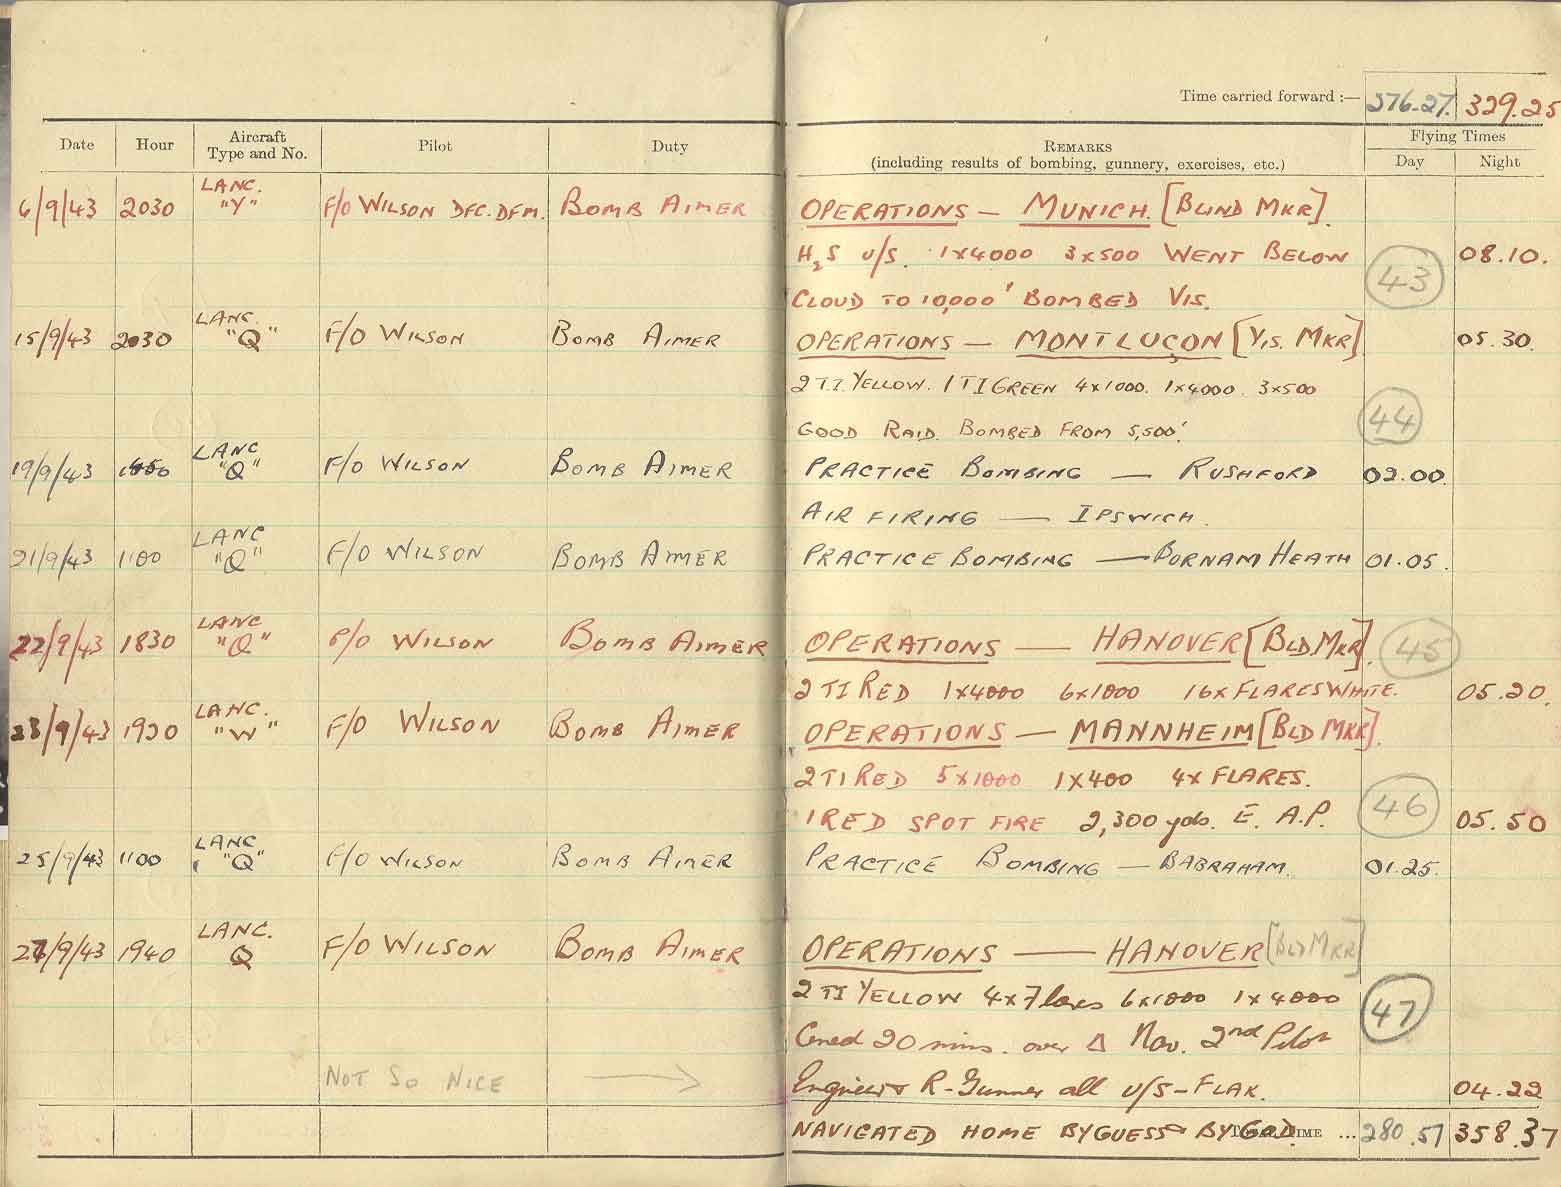 Time carried forward :— 276.27. 329.25
Date Hour Aircraft Type and No. Pilot Duty REMARKS (including results of bombing, gunnery, exercises, etc.) Flying Times Day Night
6/9/43 2030 LANC. "Y" F/O WILSON DFC. DFM. BOMB AIMER OPERATIONS — MUNICH. [BLIND MKR].
H2S U/S. 1x4000 3x500 WENT BELOW 43 08.10.
CLOUD TO 10,000' BOMBED VIS.
15/9/43 2030 LANC. "Q" F/O WILSON BOMB AIMER OPERATIONS — MONTLUÇON [VIS. MKR] 05.30.
2 T.I. YELLOW. 1 TI GREEN 4x1000. 1x4000. 3x500
GOOD RAID. BOMBED FROM 5,500'. 44
19/9/43 LANC "Q" F/O WILSON BOMB AIMER PRACTICE BOMBING — RUSHFORD 02.00.
AIR FIRING — IPSWICH.
21/9/43 1100 LANC "Q" F/O WILSON BOMB AIMER PRACTICE BOMBING — BORNAM HEATH 01.05.
22/9/43 1830 LANC "Q" F/O WILSON BOMB AIMER OPERATIONS — HANOVER [BLD. MKR]. 45
2 TI RED 1x4000 6x1000 16x FLARES WHITE. 05.20.
23/9/43 1920 LANC. "W" F/O WILSON BOMB AIMER OPERATIONS — MANNHEIM [BLD MKR].
2 TI RED 5x1000 1x400 4x FLARES.
1 RED SPOT FIRE 2,300 yds. E. A.P. 46 05.50
25/9/43 1100 LANC "Q" F/O WILSON BOMB AIMER PRACTICE BOMBING — BABRAHAM. 01.25.
27/9/43 1940 LANC. Q F/O WILSON BOMB AIMER OPERATIONS — HANOVER [BLD MKR]
2 TI YELLOW 4x Flares 6x1000 1x4000 47
Coned 20 mins. over Δ Nav. 2nd Pilot
NOT SO NICE → Engineer R-Gunner all U/S - FLAK. 04.22
NAVIGATED HOME BY GUESS & BY GOD. TOTAL TIME ... 280.57 358.37